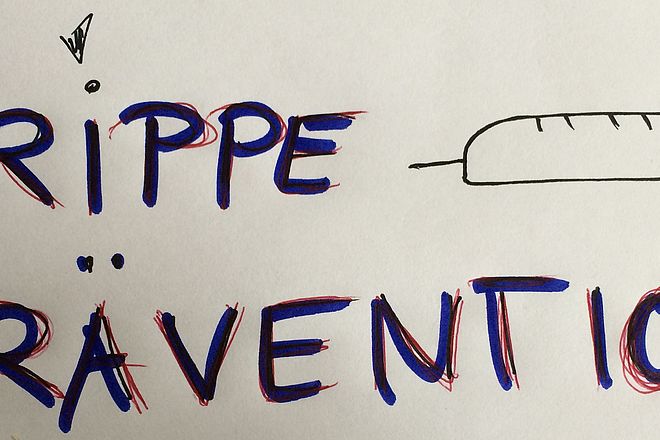 RiPPE
RÄVENTIO